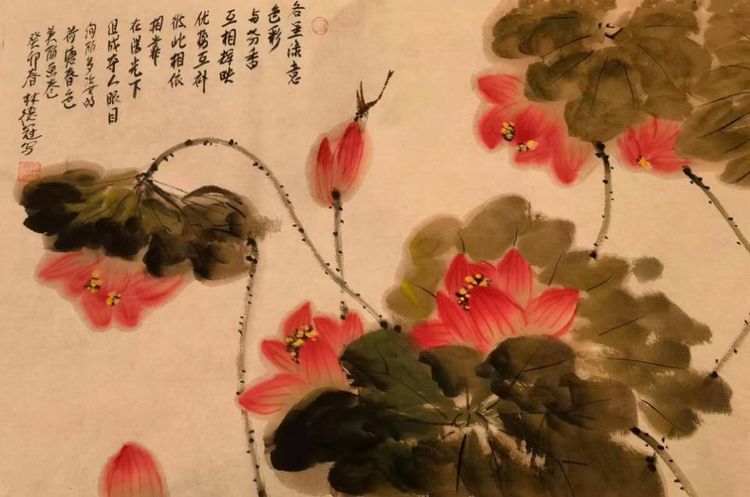 各呈流意
色彩
与芬香
互相辉映
优势互补
彼此相依
相靠
在阳光下
组成夺人眼目
绚丽多姿的
荷塘春色
美丽画卷
癸卯春 林德冠写